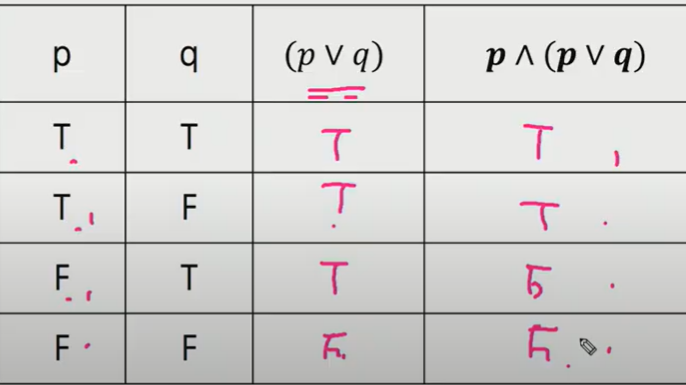 p q (p ∨ q) p ∧ (p ∨ q)
T T T T
T F T T
F T T F
F F F F